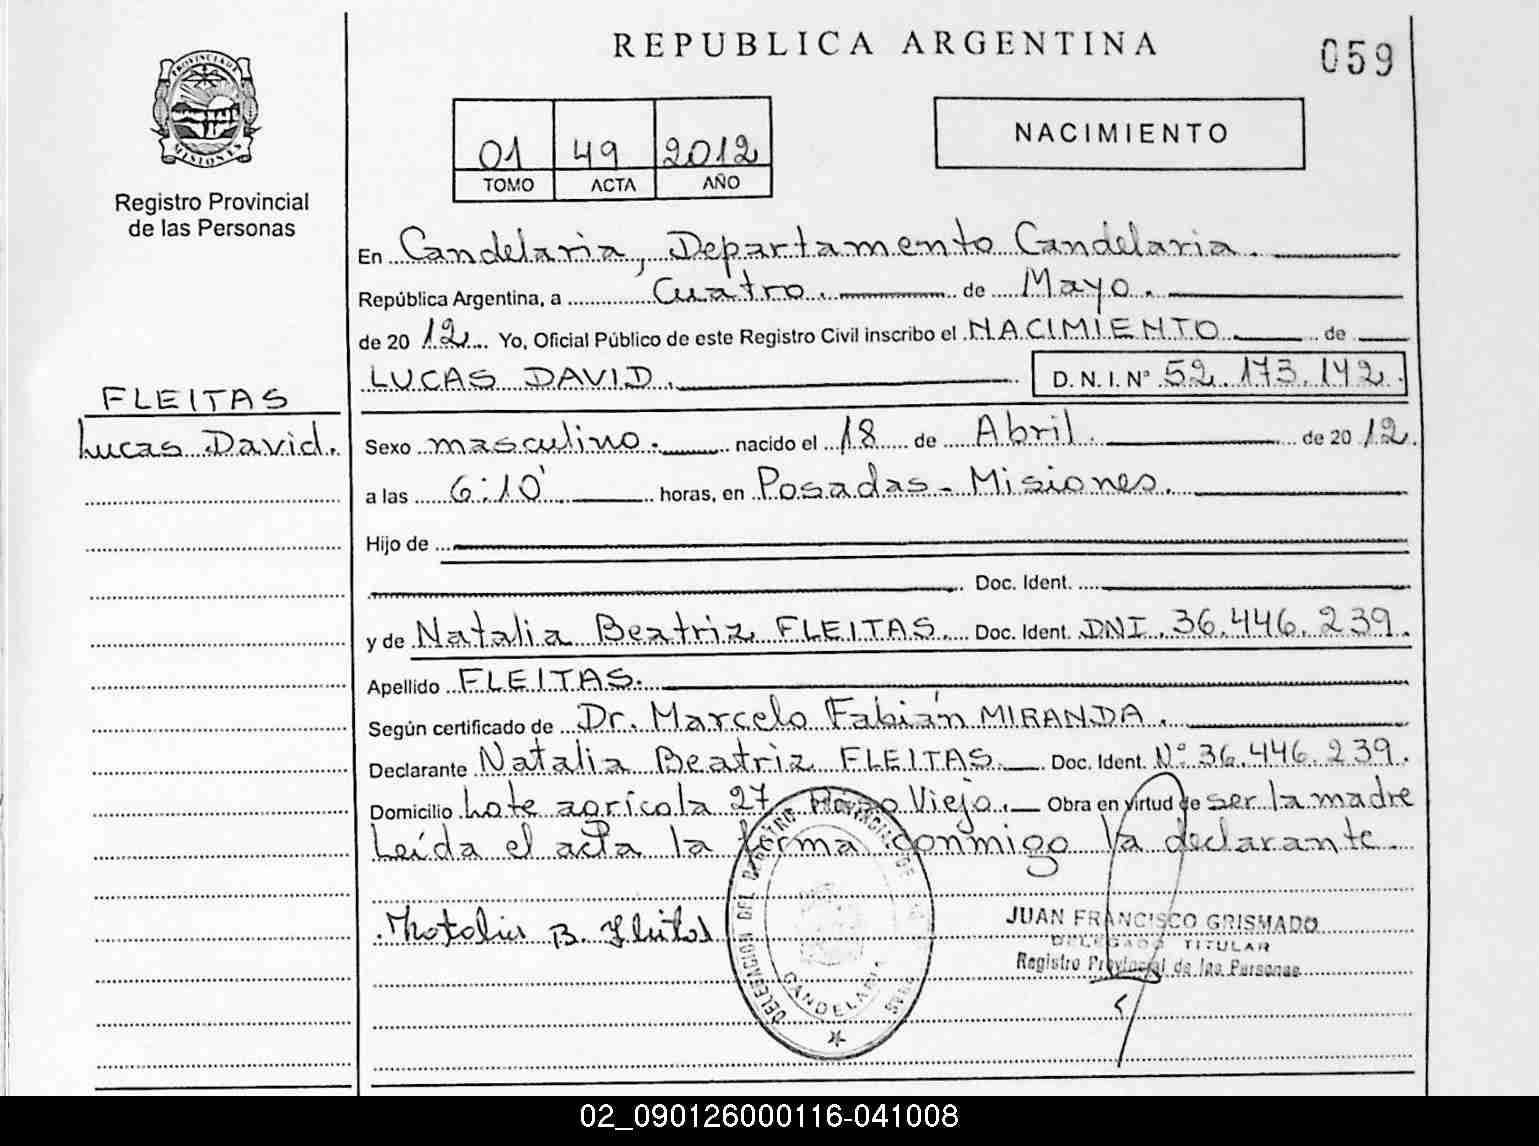 REPUBLICA ARGENTINA
059
PROVINCIA DE
MISIONES
Registro Provincial
de las Personas
01 49 2012
TOMO ACTA AÑO
NACIMIENTO
En Candelaria, Departamento Candelaria.
República Argentina, a Cuatro. de Mayo.
de 2012. Yo, Oficial Público de este Registro Civil inscribo el NACIMIENTO de
LUCAS DAVID. D. N. I. N° 52.173.142.
FLEITAS
Lucas David.
Sexo masculino. nacido el 18 de Abril. de 2012.
a las 6:10' horas, en Posadas - Misiones.
Hijo de
Doc. Ident.
y de Natalia Beatriz FLEITAS. Doc. Ident. DNI. 36.446.239.
Apellido FLEITAS.
Según certificado de Dr. Marcelo Fabián MIRANDA.
Declarante Natalia Beatriz FLEITAS. Doc. Ident. N° 36.446.239.
Domicilio Lote agrícola 27, Viejo. Obra en virtud de ser la madre
Leída el acta la firma conmigo la declarante.
Natalia B. Fleitas
DELEGACION DEL REGISTRO PROVINCIAL DE
CANDELARIA
JUAN FRANCISCO GRISMADO
DELEGADO TITULAR
Registro Provincial de las Personas
02_090126000116-041008